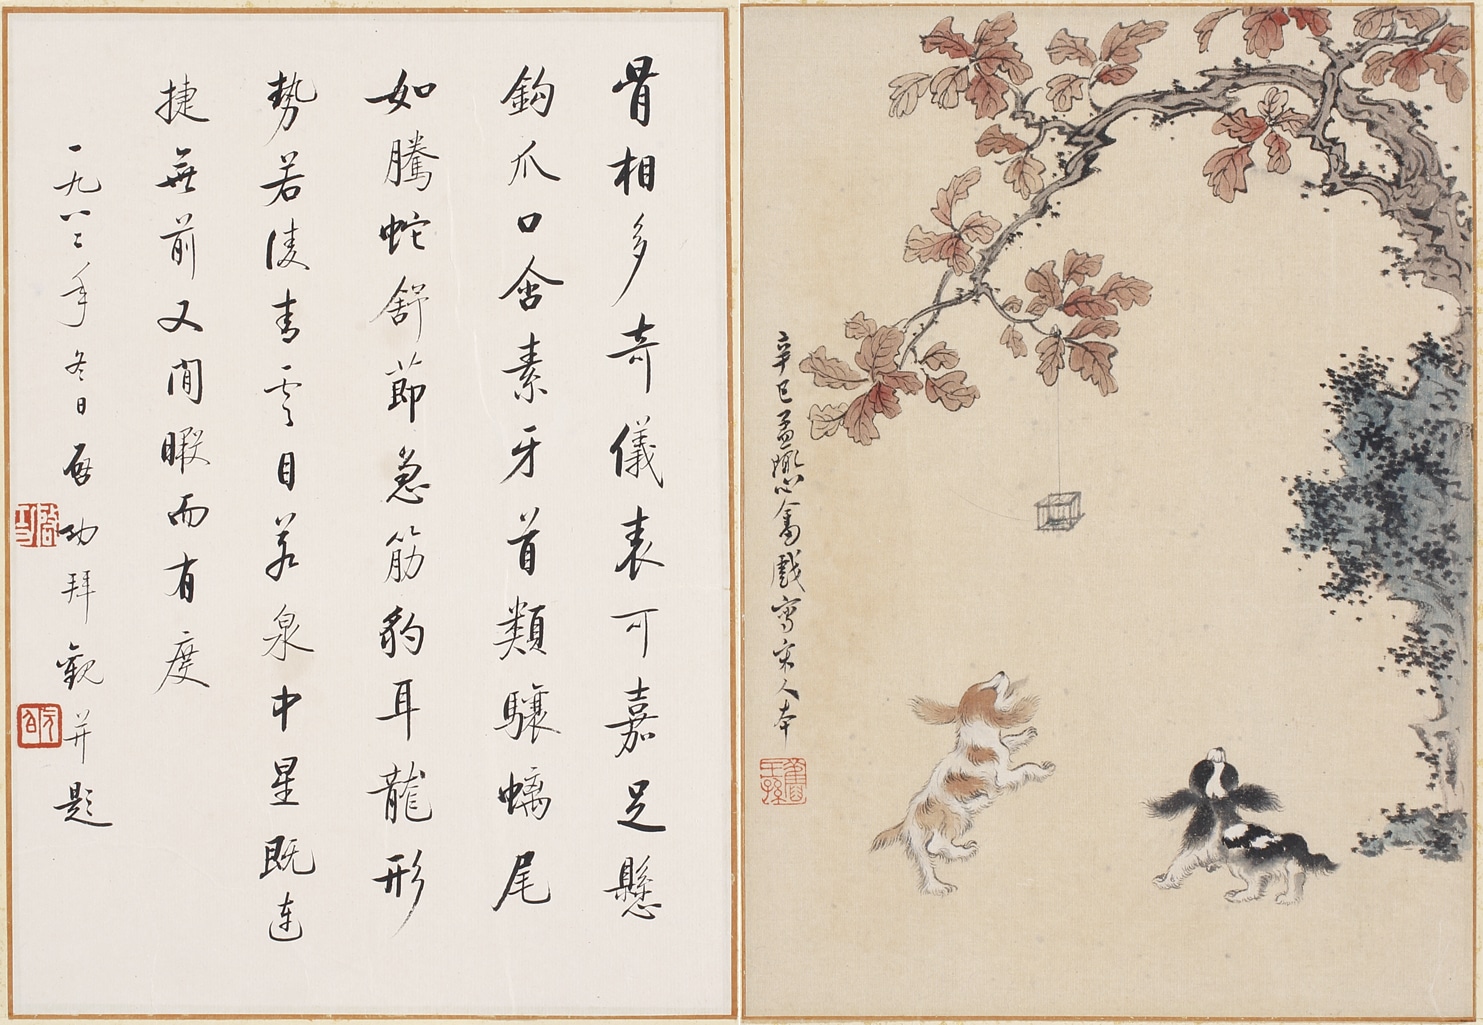 骨相多奇儀表可嘉足懸
鈎爪口含素牙首類驤螭尾
如騰蛇舒節急筋豹耳龍形
勢若淩青雲目若泉中星既速
捷無前又閒暇而有度
一九八二年冬日啟功拜觀并題
啟功
元白
辛巳孟陬心畬戲寫宋人本
舊王孫